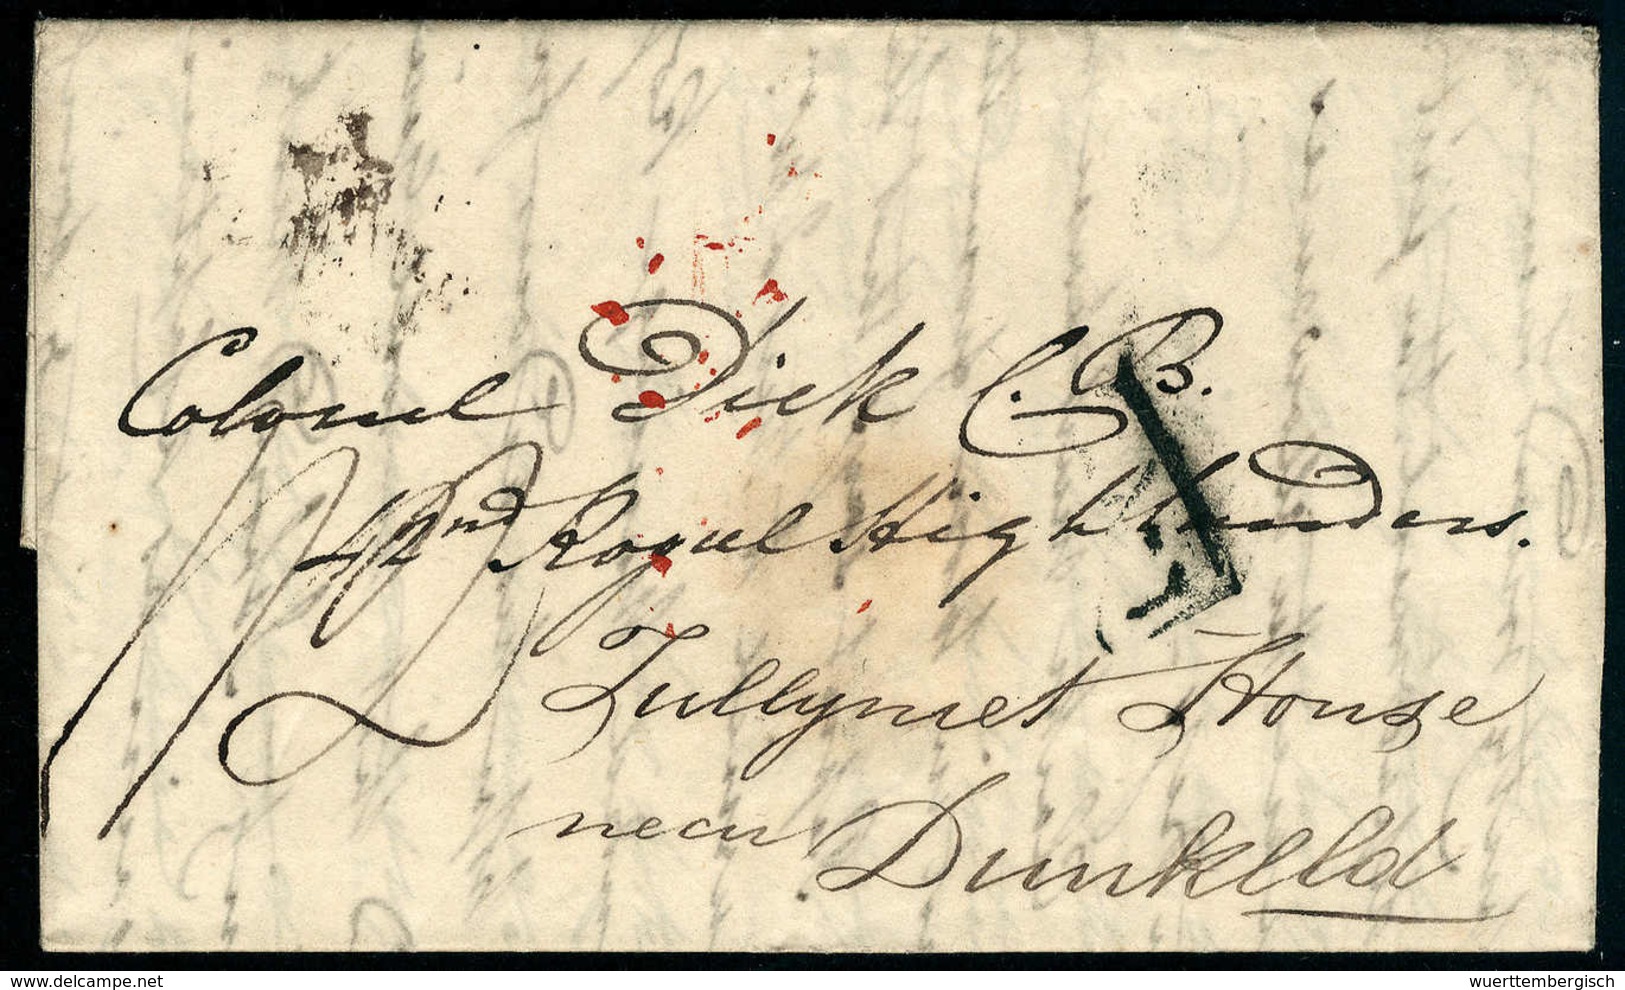 Colonel Dick C.B.
42nd Royal Highlanders.
Tullymet House
near Dunkeld
delcampe.net
wuerttembergisch